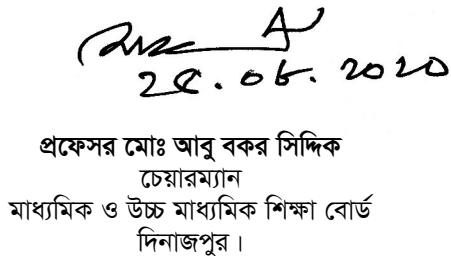 ২৫.০৮.২০২০
প্রফেসর মোঃ আবু বকর সিদ্দিক
চেয়ারম্যান
মাধ্যমিক ও উচ্চ মাধ্যমিক শিক্ষা বোর্ড
দিনাজপুর।